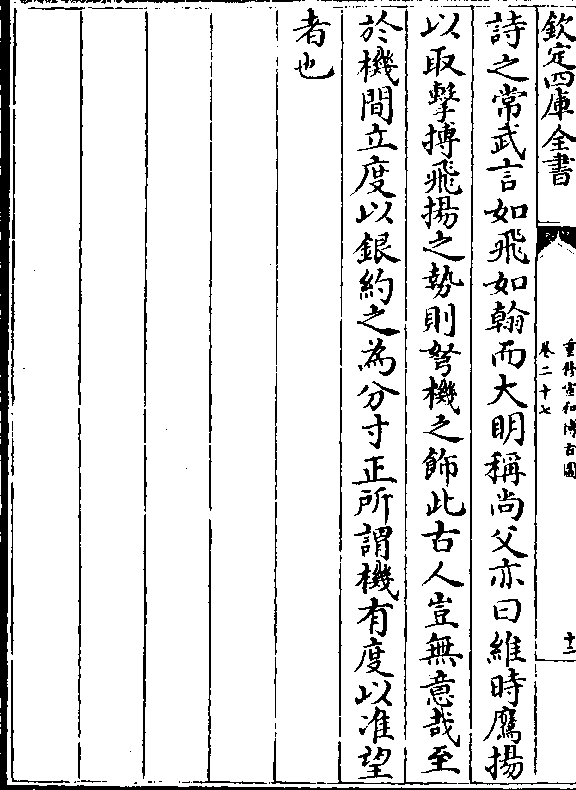 欽定四庫全書
重修宣和博古圖
卷二十七
十二
詩之常武言如飛如翰而大明稱尚父亦曰維時鷹揚
以取擊摶飛揚之勢則弩機之飾此古人豈無意哉至
於機間立度以銀約之為分寸正所謂機有度以准望
者也